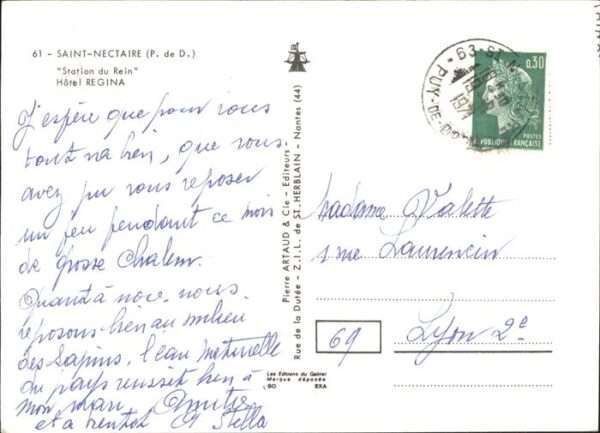 61 - SAINT-NECTAIRE (P. de D.)
"Station du Rein"
Hôtel REGINA
J'espère que pour vous
tout va bien, que vous
avez pu vous reposer
un peu pendant ce mois
de grosse Chaleur.
Quant à nous, nous
reposons bien au milieu
des Sapins, l'eau naturelle
du pays reussit bien à
mon mari. Amitiés
et a bientot Stella
Pierre ARTAUD & Cie - Editeurs -
Rue de la Dutée - Z.I.L. de ST. HERBLAIN - Nantes (44)
Les Editions du Gabier
Marque déposée
EKA
63-ST
PUY-DE-D
0,30
POSTES
REPUBLIQUE FRANÇAISE
Madame Valette
1 rue Laurencin
69
Lyon 2e